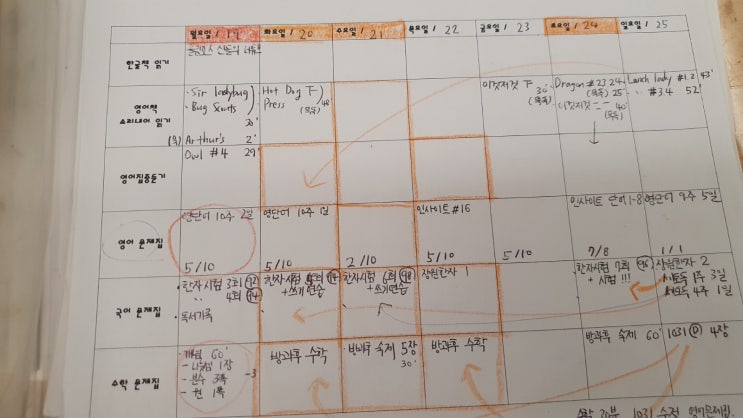 월요일 / 19
화요일 / 20
수요일 / 21
목요일 / 22
금요일 / 23
토요일 / 24
일요일 / 25
한글책 읽기
신들의
영어책
소리내어 읽기
· Sir Ladybug
· Bug Scouts
30'
(묵) Arthur's 2'
Hot Dog 下
Press
(묵독)
이것저것 下
30'
(묵독)
Dragon #23 24
(묵독) 25'
이것저것 ㅡㅡ 40'
(묵독)
Lunch lady #1.2 43'
" #3.4 52'
영어집중듣기
Owl #4 29'
영어 문제집
영단어 10주 2일
5/10
영단어 10주 1일
5/10
2/10
인사이트 #16
5/10
5/10
인사이트 단어 1-8
7/8
영단어 9주 5일
1/1
국어 문제집
한자시험 3회 92
" 4회 94
· 독서기록
한자시험 5회
+쓰기연습
한자시험 6회 98
+쓰기연습
장원한자 1
한자시험 7회 96
+ 시험 !!!
장원한자 2
1주 3일
4주 1일
수학 문제집
60'
1장
- 분수 3쪽
- 원 1쪽
-3
방과후 수학
방과후 숙제 5장
30'
방과후 수학
방과후 숙제 60'
1031 (D) 4장
1031 수정